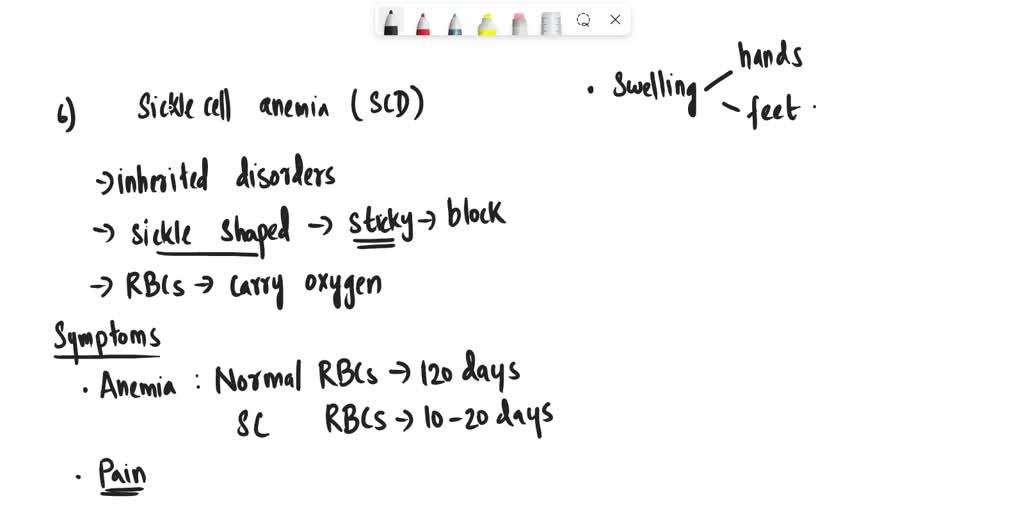 6) Sickle cell anemia (SCD)
→ inherited disorders
→ sickle shaped → sticky → block
→ RBCs → carry oxygen
Symptoms
. Anemia : Normal RBCs → 120 days
SC RBCs → 10-20 days
. Pain
. Swelling
hands
feet .